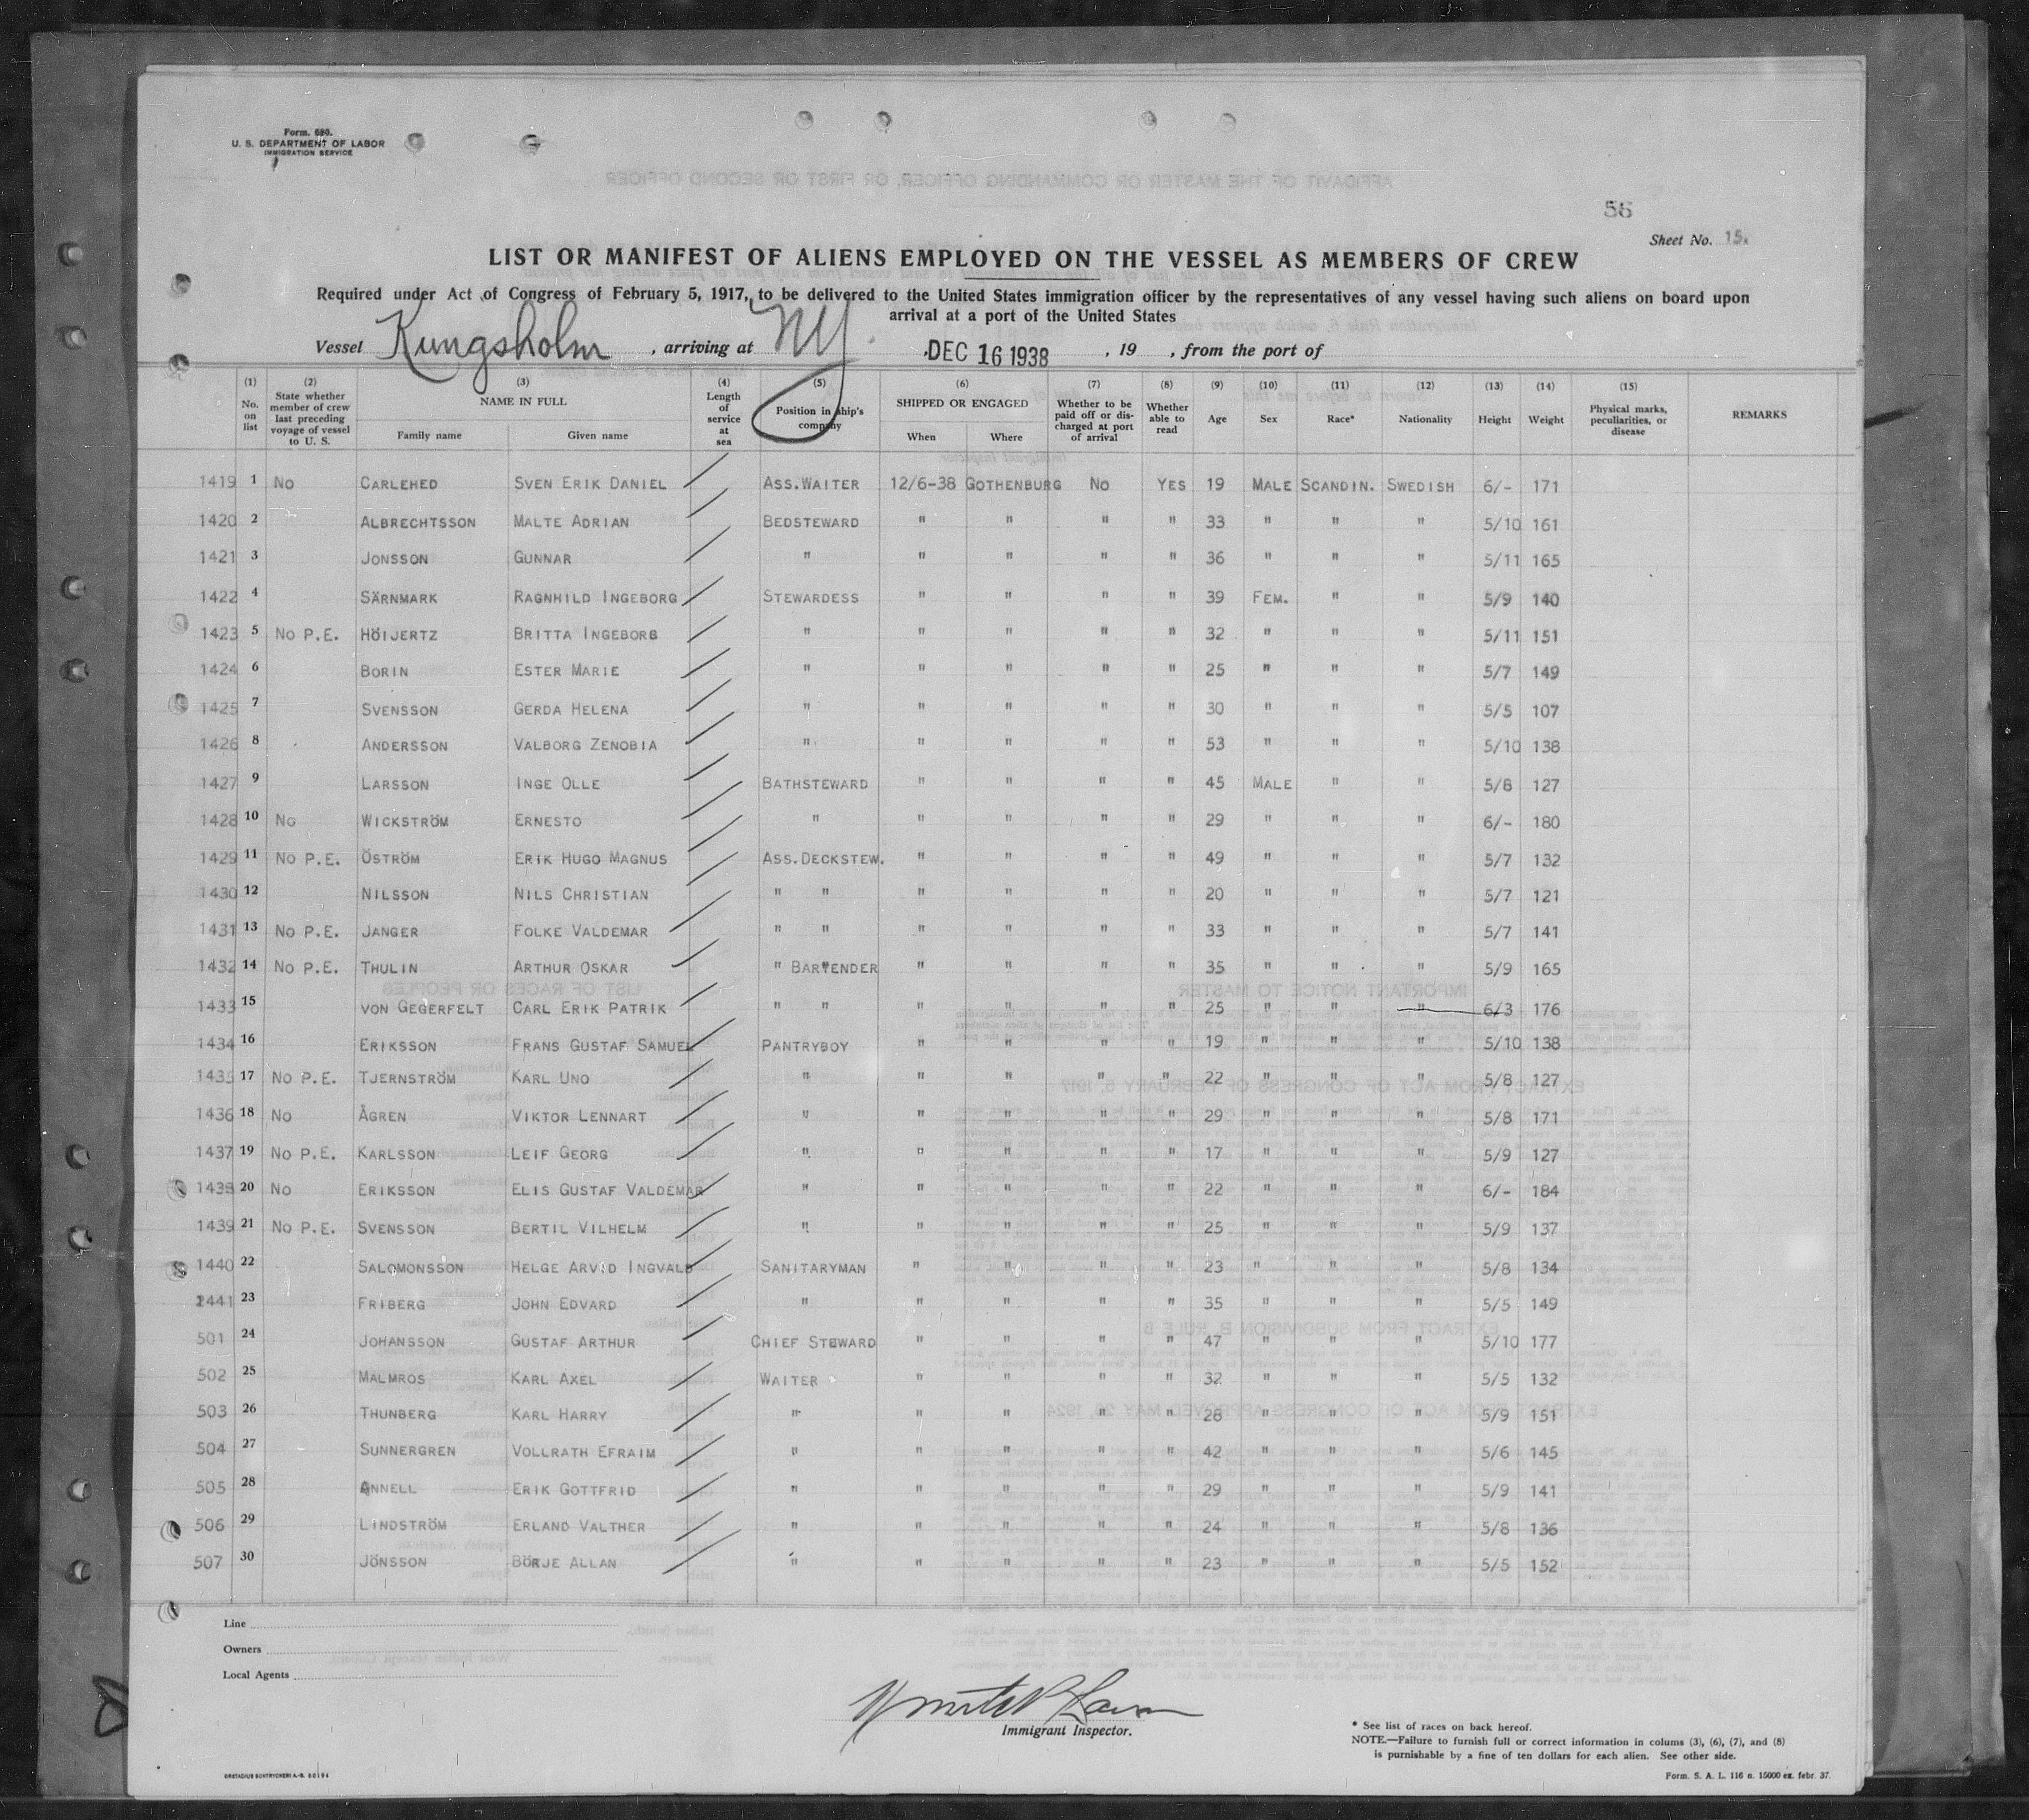 Form. 680.
U. S. DEPARTMENT OF LABOR
IMMIGRATION SERVICE
56
Sheet No. 15.
LIST OR MANIFEST OF ALIENS EMPLOYED ON THE VESSEL AS MEMBERS OF CREW
Required under Act of Congress of February 5, 1917, to be delivered to the United States immigration officer by the representatives of any vessel having such aliens on board upon
arrival at a port of the United States
Vessel Kungsholm , arriving at NY , DEC 16 1938 , 19 , from the port of
(1) No. on list (2) State whether member of crew last preceding voyage of vessel to U. S. (3) NAME IN FULL Family name Given name (4) Length of service at sea (5) Position in ship's company (6) SHIPPED OR ENGAGED When Where (7) Whether to be paid off or discharged at port of arrival (8) Whether able to read (9) Age (10) Sex (11) Race* (12) Nationality (13) Height (14) Weight (15) Physical marks, peculiarities, or disease REMARKS
1419 1 No CARLEHED SVEN ERIK DANIEL ASS.WAITER 12/6-38 GOTHENBURG No YES 19 MALE SCANDIN. SWEDISH 6/- 171
1420 2 ALBRECHTSSON MALTE ADRIAN BEDSTEWARD " " " " 33 " " " 5/10 161
1421 3 JONSSON GUNNAR " " " " " 36 " " " 5/11 165
1422 4 SÄRNMARK RAGNHILD INGEBORG STEWARDESS " " " " 39 FEM. " " 5/9 140
1423 5 No P.E. HÖIJERTZ BRITTA INGEBORG " " " " " 32 " " " 5/11 151
1424 6 BORIN ESTER MARIE " " " " " 25 " " " 5/7 149
1425 7 SVENSSON GERDA HELENA " " " " " 30 " " " 5/5 107
1426 8 ANDERSSON VALBORG ZENOBIA " " " " " 53 " " " 5/10 138
1427 9 LARSSON INGE OLLE BATHSTEWARD " " " " 45 MALE " " 5/8 127
1428 10 No WICKSTRÖM ERNESTO " " " " " 29 " " " 6/- 180
1429 11 No P.E. ÖSTRÖM ERIK HUGO MAGNUS ASS.DECKSTEW. " " " " 49 " " " 5/7 132
1430 12 NILSSON NILS CHRISTIAN " " " " " " 20 " " " 5/7 121
1431 13 No P.E. JANGER FOLKE VALDEMAR " " " " " " 33 " " " 5/7 141
1432 14 No P.E. THULIN ARTHUR OSKAR " BARTENDER " " " " 35 " " " 5/9 165
1433 15 VON GEGERFELT CARL ERIK PATRIK " " " " " " 25 " " " 6/3 176
1434 16 ERIKSSON FRANS GUSTAF SAMUEL PANTRYBOY " " " " 19 " " " 5/10 138
1435 17 No P.E. TJERNSTRÖM KARL UNO " " " " " 22 " " " 5/8 127
1436 18 No ÅGREN VIKTOR LENNART " " " " " 29 " " " 5/8 171
1437 19 No P.E. KARLSSON LEIF GEORG " " " " " 17 " " " 5/9 127
1438 20 No ERIKSSON ELIS GUSTAF VALDEMAR " " " " " 22 " " " 6/- 184
1439 21 No P.E. SVENSSON BERTIL VILHELM " " " " " 25 " " " 5/9 137
1440 22 SALOMONSSON HELGE ARVID INGVALD SANITARYMAN " " " " 23 " " " 5/8 134
1441 23 FRIBERG JOHN EDVARD " " " " " 35 " " " 5/5 149
501 24 JOHANSSON GUSTAF ARTHUR CHIEF STEWARD " " " " 47 " " " 5/10 177
502 25 MALMROS KARL AXEL WAITER " " " " 32 " " " 5/5 132
503 26 THUNBERG KARL HARRY " " " " " 28 " " " 5/9 151
504 27 SUNNERGREN VOLLRATH EFRAIM " " " " " 42 " " " 5/6 145
505 28 ANNELL ERIK GOTTFRID " " " " " 29 " " " 5/9 141
506 29 LINDSTRÖM ERLAND VALTHER " " " " " 24 " " " 5/8 136
507 30 JÖNSSON BÖRJE ALLAN " " " " " 23 " " " 5/5 152
Line
Owners
Local Agents
Immigrant Inspector.
* See list of races on back hereof.
NOTE.—Failure to furnish full or correct information in colums (3), (6), (7), and (8)
is purnishable by a fine of ten dollars for each alien. See other side.
Form. S. A. L. 116 n. 15000 ex. febr. 37.